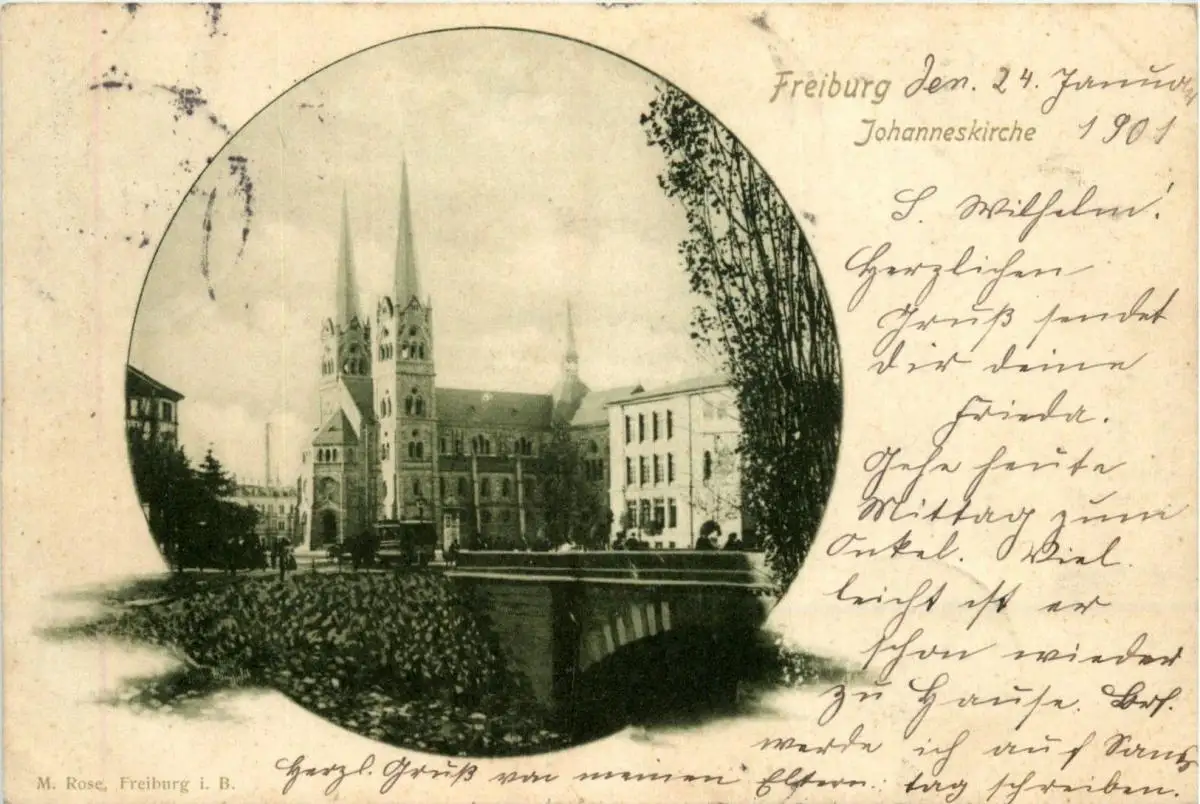 Freiburg den. 24. Januar
Johanneskirche 1901
L. Wilhelm!
Herzlichen
Gruß sendet
dir deine
Frieda.
Gehe heute
Mittag zum
Onkel. Viel
leicht ist er
schon wieder
zu Hause. Brf.
werde ich auf Sams
tag schreiben.
Herzl. Gruß von meinen Eltern.
M. Rose, Freiburg i. B.